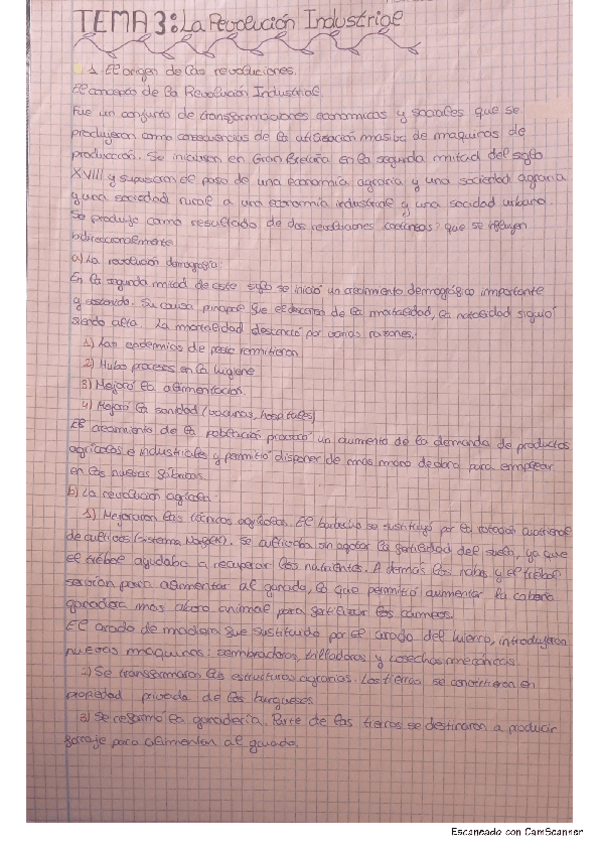 TEMA 3: La Revolución Industrial
1. El origen de las revoluciones.
El concepto de la Revolución Industrial
Fue un conjunto de transformaciones economicas y sociales que se
produjeron como consecuencias de la utilización masiva de maquinas de
producción. Se iniciaron en Gran Bretaña en la segunda mitad del siglo
XVIII y supusieron el paso de una economía agraria y una sociedad agraria
y una sociedad rural a una economía industrial y una socidad urbana.
Se produjo como resultado de dos revoluciones que se influyen
bidireccionalmente
a) La revolución demografica:
En la segunda mitad de este siglo se inició un crecimiento demográfico importante
y sostenido. Su causa principal fue el descenso de la mortalidad, la natalidad siguió
siendo alta. La mortalidad descendió por varias razones:
1) Las epidemias de peste remitieron
2) Hubo procesos en la higiene
3) Mejoró la alimentacion.
4) Mejoró la sanidad (vacunas, hospitales)
El crecimiento de la población provocó un aumento de la demanda de productos
agrícolas e industriales y permitió disponer de más mano de obra para emplear
en las nuevas fábricas.
b) La revolución agrícola:
1) Mejoraron las técnicas agrícolas. El barbecho se sustituyó por la rotación
de cultivos (sistema Norfolk). Se cultivaba sin agotar la fertilidad del suelo, ya que
el trébol ayudaba a recuperar los nutrientes. A demás los nabos y el trébol
servían para alimentar al ganado, lo que permitió aumentar la cabaña
ganadera mas abono animal para fertilizar los campos.
El arado de madera fue sustituido por el arado del hierro, introdujeron
nuevas maquinas: sembradoras, trilladoras y cosechas mecánicas.
2) Se transformaron las estructuras agrarias. Las tierras se convirtieron en
propiedad privada de los burgueses
3) Se reformó la ganadería. Parte de las tierras se destinaron a producir
forraje para alimentar al ganado.
Escaneado con CamScanner